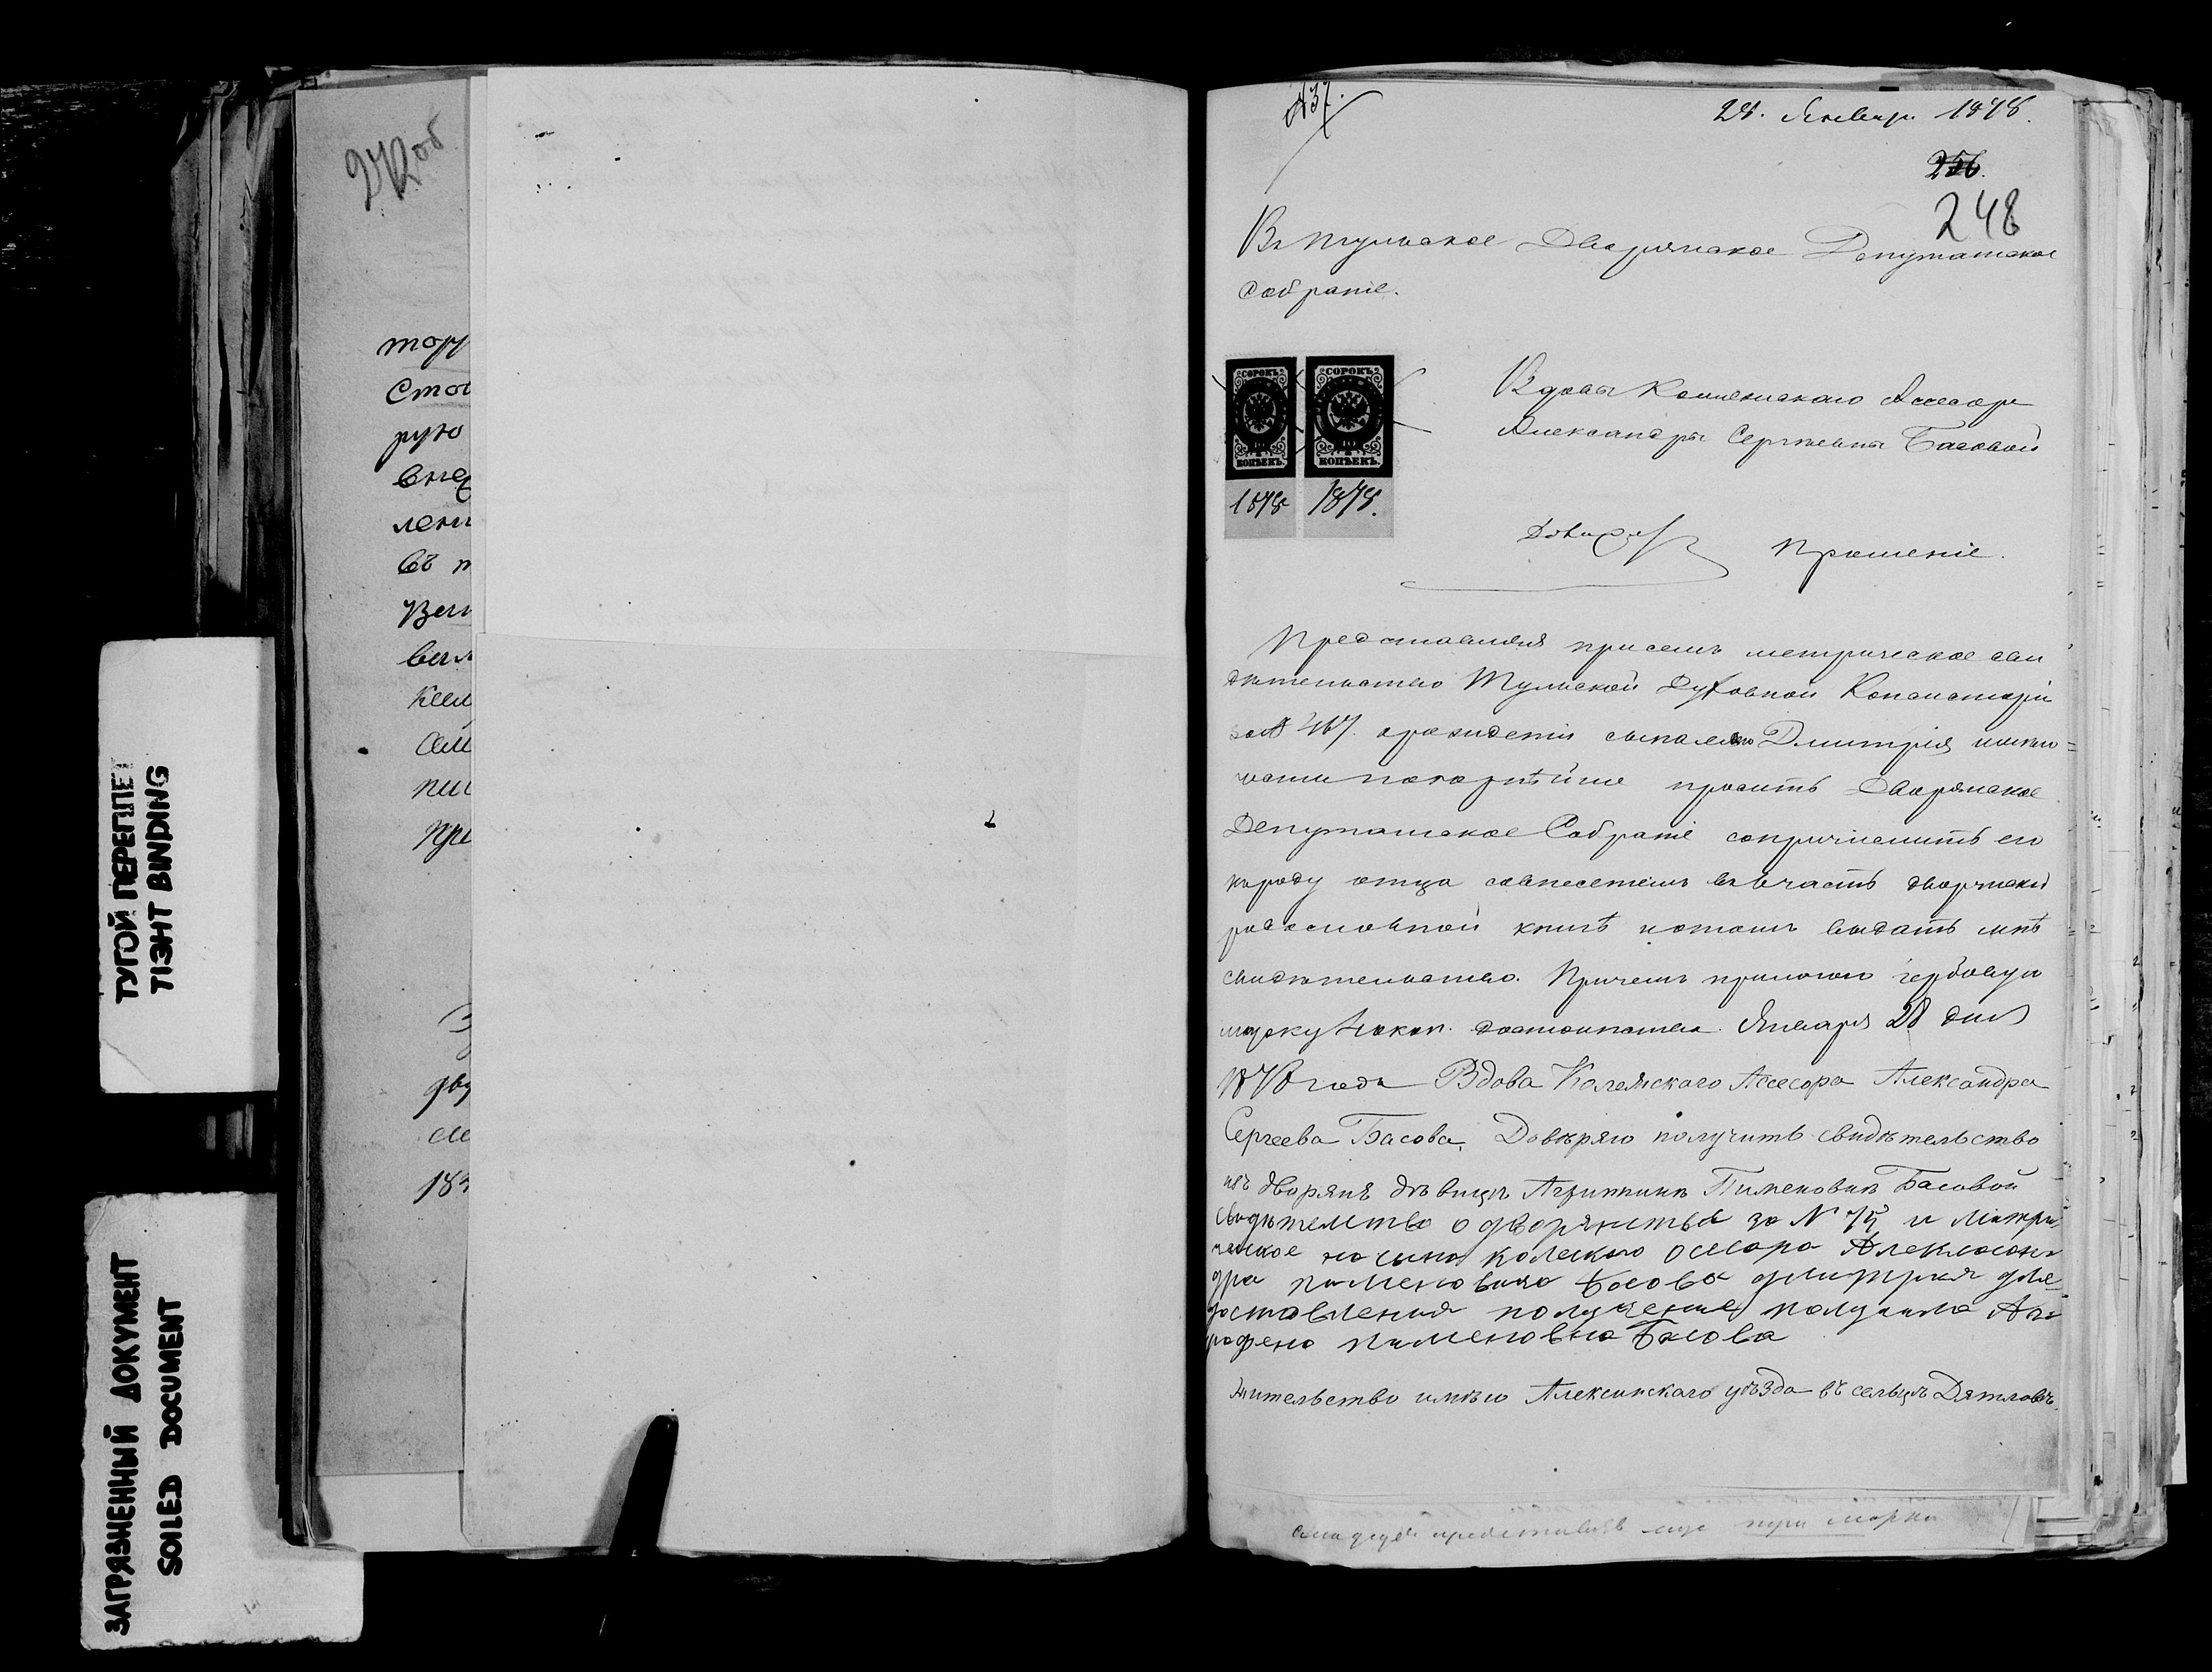 247об
тор
Сто
рую
внес
лени
въ п
Вели
вел
Кел
Сем
пис
При
дву
183
ТУГОЙ ПЕРЕПЛЕТ
TIЭHT BINDING
ЗАГРЯЗНЕННЫЙ ДОКУМЕНТ
SOILED DOCUMENT
№ 37.
28. Январ. 1878.
256.
248
Въ Тульское Дворянское Депутатское
Собраніе.
СОРОКЪ КОПѢЕКЪ.
СОРОКЪ КОПѢЕКЪ.
1878 1878.
Вдовы Коллежскаго Ассесора
Александры Сергѣевны Басовой
Прошеніе.
Представляя присемъ метрическое сви
дѣтельство Тульской Духовной Консисторіи
за № 467. о рожденіи сына моего Дмитрія имѣю
честь покорнѣйше просить Дворянское
Депутатское Собраніе сопричислить его
къ роду отца со внесеніемъ въ часть дворянской
родословной книгѣ и о томъ выдать мнѣ
свидѣтельство. Причемъ прилагаю гербовую
марку 40 коп. достоинства. Января 28 дня
1878 года Вдова Колежскаго Ассесора Александра
Сергеева Басова. Довѣряю получить свидѣтельство
изъ дворянъ дѣвицѣ Агрипинѣ Пименовнѣ Басовой
свидѣтельство о дворянствѣ за № 75 и метри
ческое на сына колескаго осесора Алексан
дра Пименовича Басова Дмитрия для
доставления получение получила Аг
рафена Пименовна Басова
Жительство имѣю Алексинскаго уѣзда въ сельцѣ Дятловѣ.
представивъ еще три марки